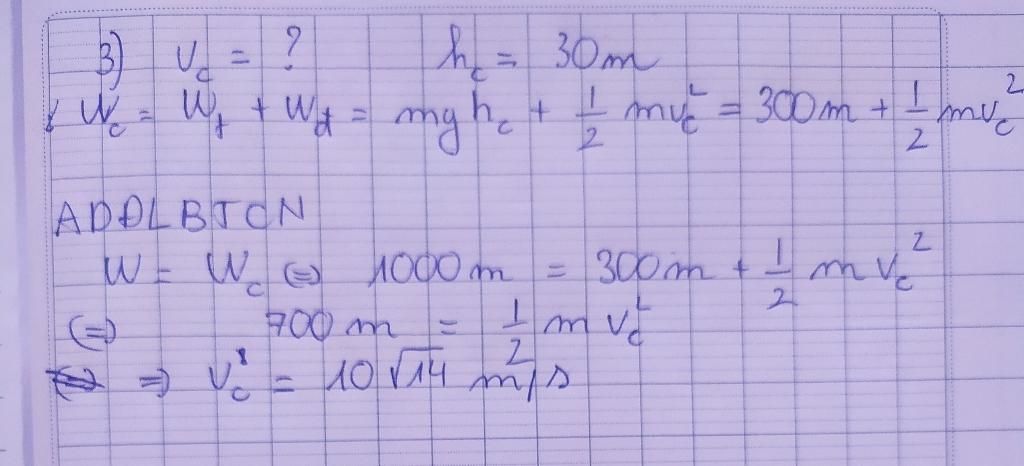 3) v_c = ? h_c = 30m
W_c = W_t + W_đ = mgh_c + 1/2 mv_c^2 = 300m + 1/2 mv_c^2
ADĐLBTCN
W = W_c ⇔ 1000m = 300m + 1/2 m v_c^2
⇔ 700m = 1/2 m v_c^2
⇒ v_c = 10√14 m/s